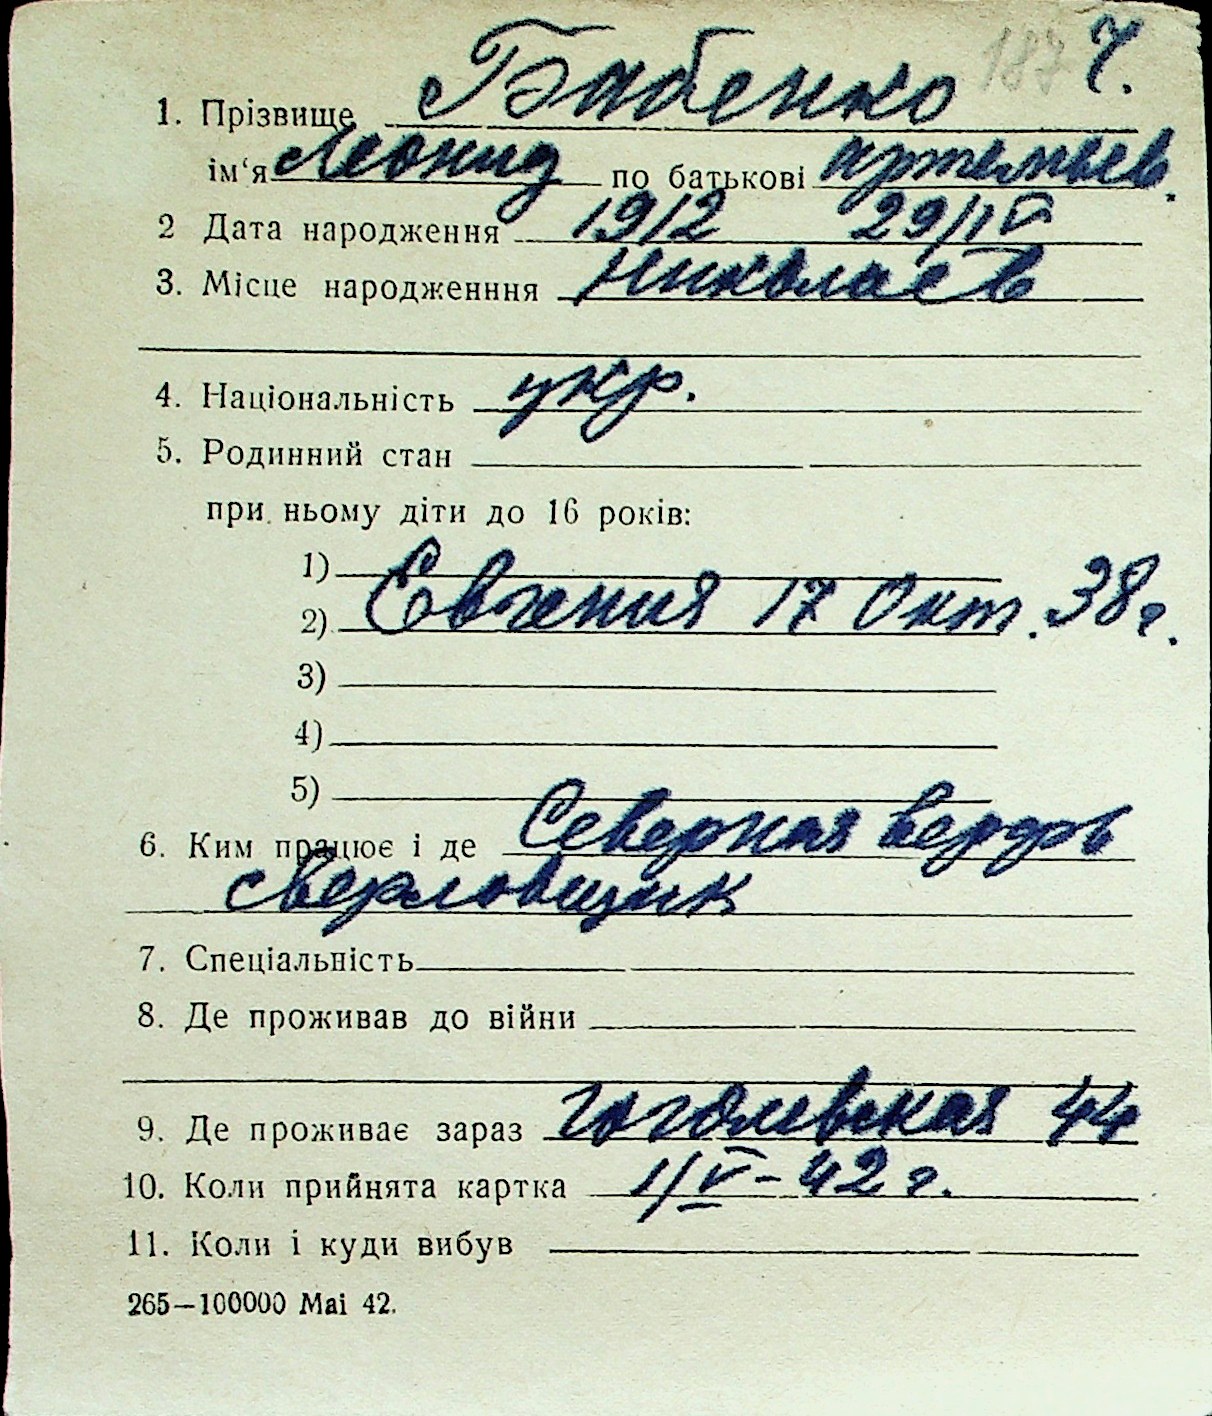 187 Ч.
1. Прізвище Бабенко
ім‘я Леонид по батькові Артемьев.
2 Дата народження 1912 29/IV
3. Місце народженння Николаев
4. Національність укр.
5. Родинний стан
при ньому діти до 16 років:
1)
2) Евгения 17 Окт. 38 г.
3)
4)
5)
6. Ким працює і де Северная верфь
сверловщик
7. Спеціальність
8. Де проживав до війни
9. Де проживає зараз Гоголевская 44
10. Коли прийнята картка 1/V-42 г.
11. Коли і куди вибув
265—100000 Mai 42.